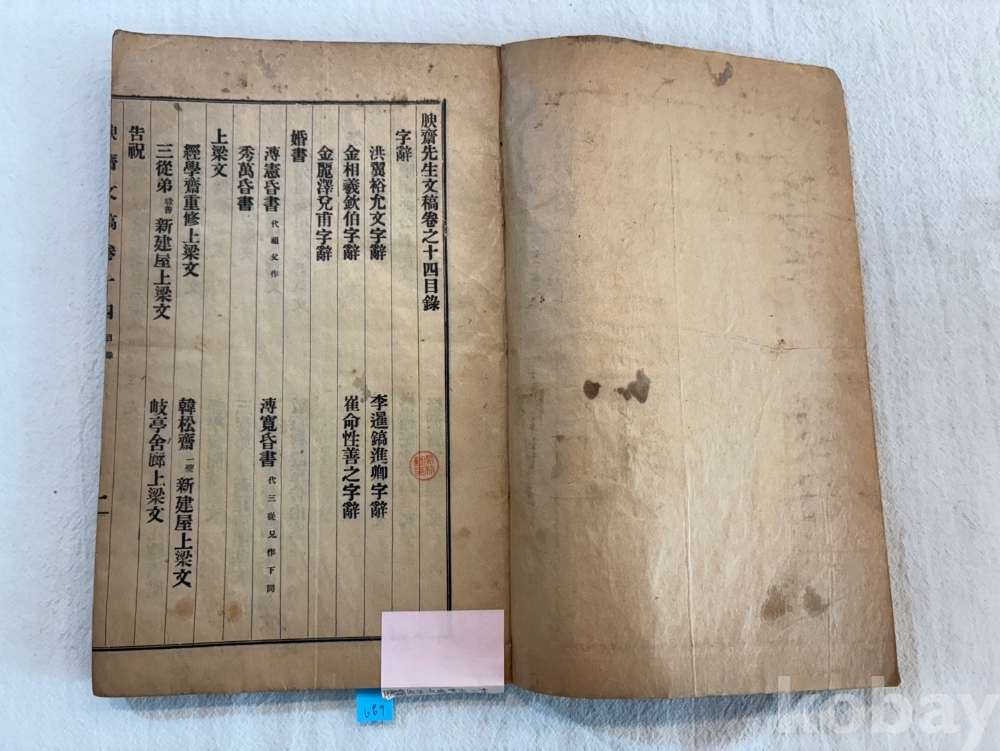 腴齋先生文稿卷之十四目錄
字辭
洪翼裕允文字辭 李暹鎬進卿字辭
金相羲欽伯字辭 崔命性善之字辭
金麗澤兌甫字辭
婚書
溥憲昏書 代祖父作 溥寬昏書 代三從兄作下同
秀萬昏書
上梁文
經學齋重修上梁文 韓松齋 新建屋上梁文
三從弟 新建屋上梁文 岐亭舍廊上梁文
告祝
腴齋文稿卷十四 目錄 一
689
kobay